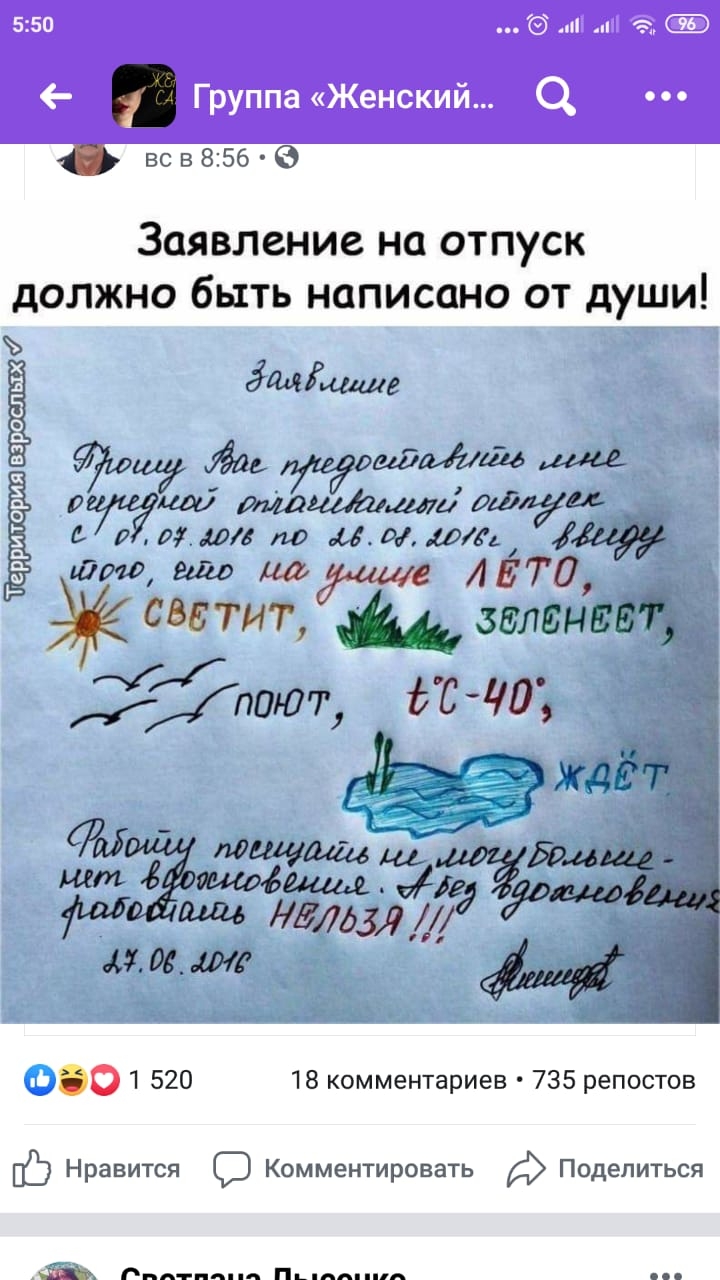 5:50
96
Группа «Женский...
вс в 8:56 •
Заявление на отпуск
должно быть написано от души!
Территория взрослых
Заявление
Прошу Вас предоставить мне
очередной оплачиваемый отпуск
с 01.07.2016 по 26.08.2016г, ввиду
того, что на улице ЛЕТО,
СВЕТИТ, ЗЕЛЕНЕЕТ,
ПОЮТ, t°C-40°,
ЖДЁТ
Работу посещать не могу больше -
нет вдохновения. А без вдохновения
работать НЕЛЬЗЯ!!!
27.06.2016
1 520
18 комментариев • 735 репостов
Нравится
Комментировать
Поделиться
Светлана Лысенко